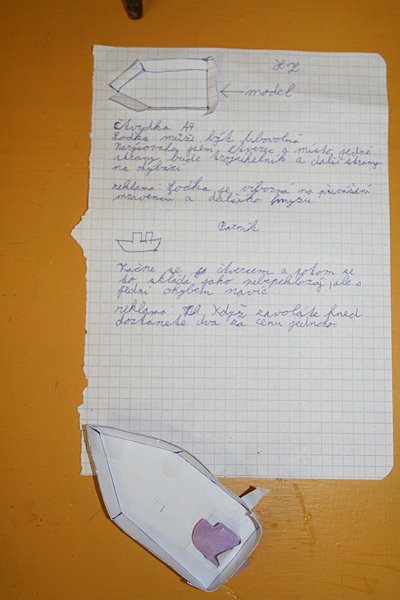 HZ
model
čtvrtka A4
Lodka může být libovolná
narýsovala jsem čtverec a místo jedné
strany bude trojúhelník a další strany
na ohýbání
reklama: Lodka je výborná na
mravenců a dalšího hmyzu.
Parník
Začne se se čtvercem a potom se
to skládá jako nebe peklo ráj, ale s
jedním ohybem navíc
reklama Když zavoláte hned
dostanete dva za cenu jednoho